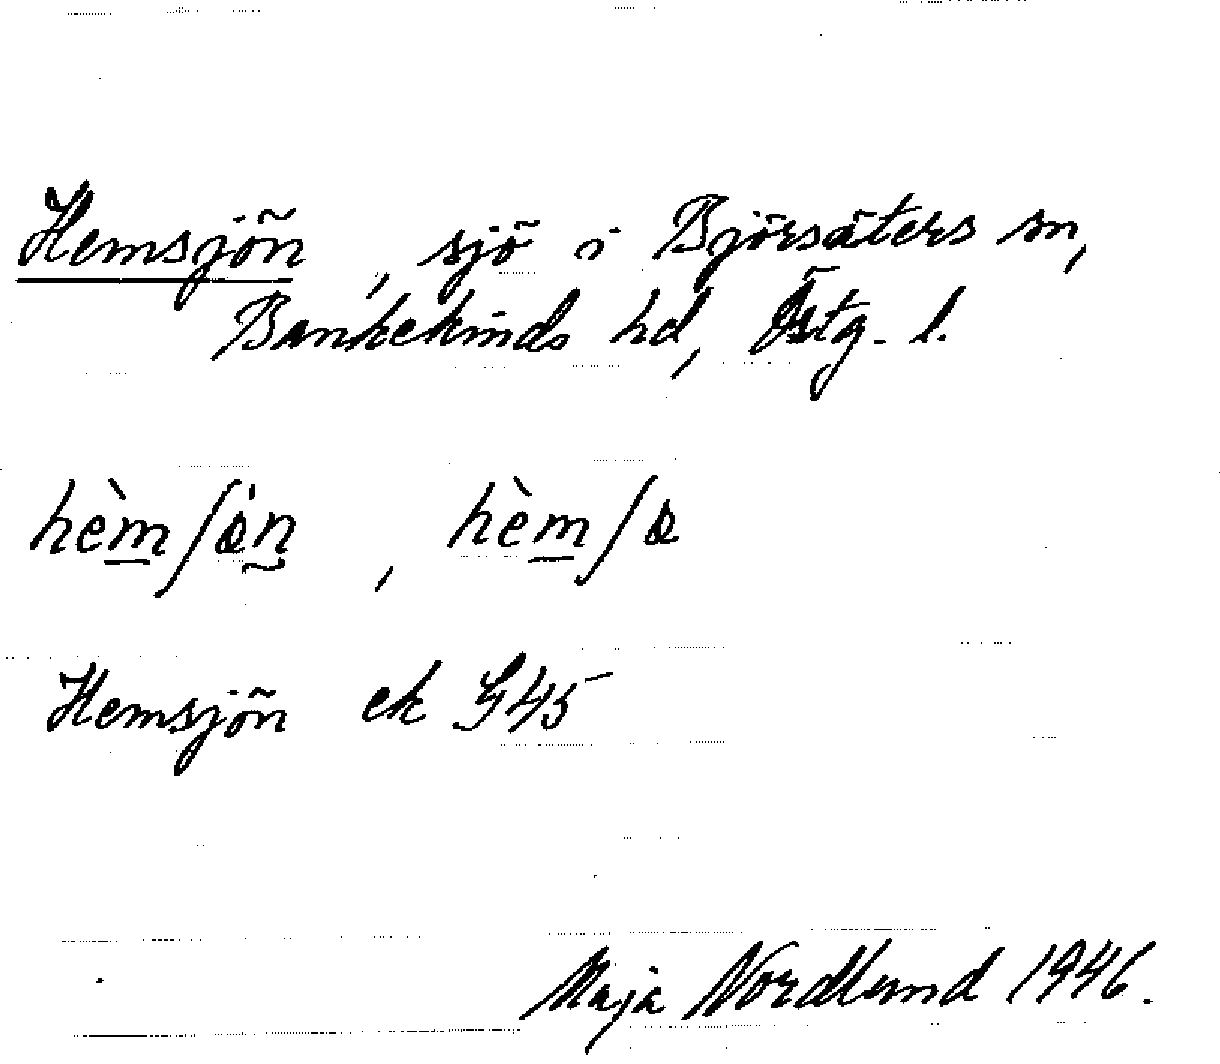 Hemsjön, sjö i Björsäters sn,
Bankekinds hd, Östg. l.
hèmʃön, hèmʃö
Hemsjön ek G45
Maja Nordlund 1946.